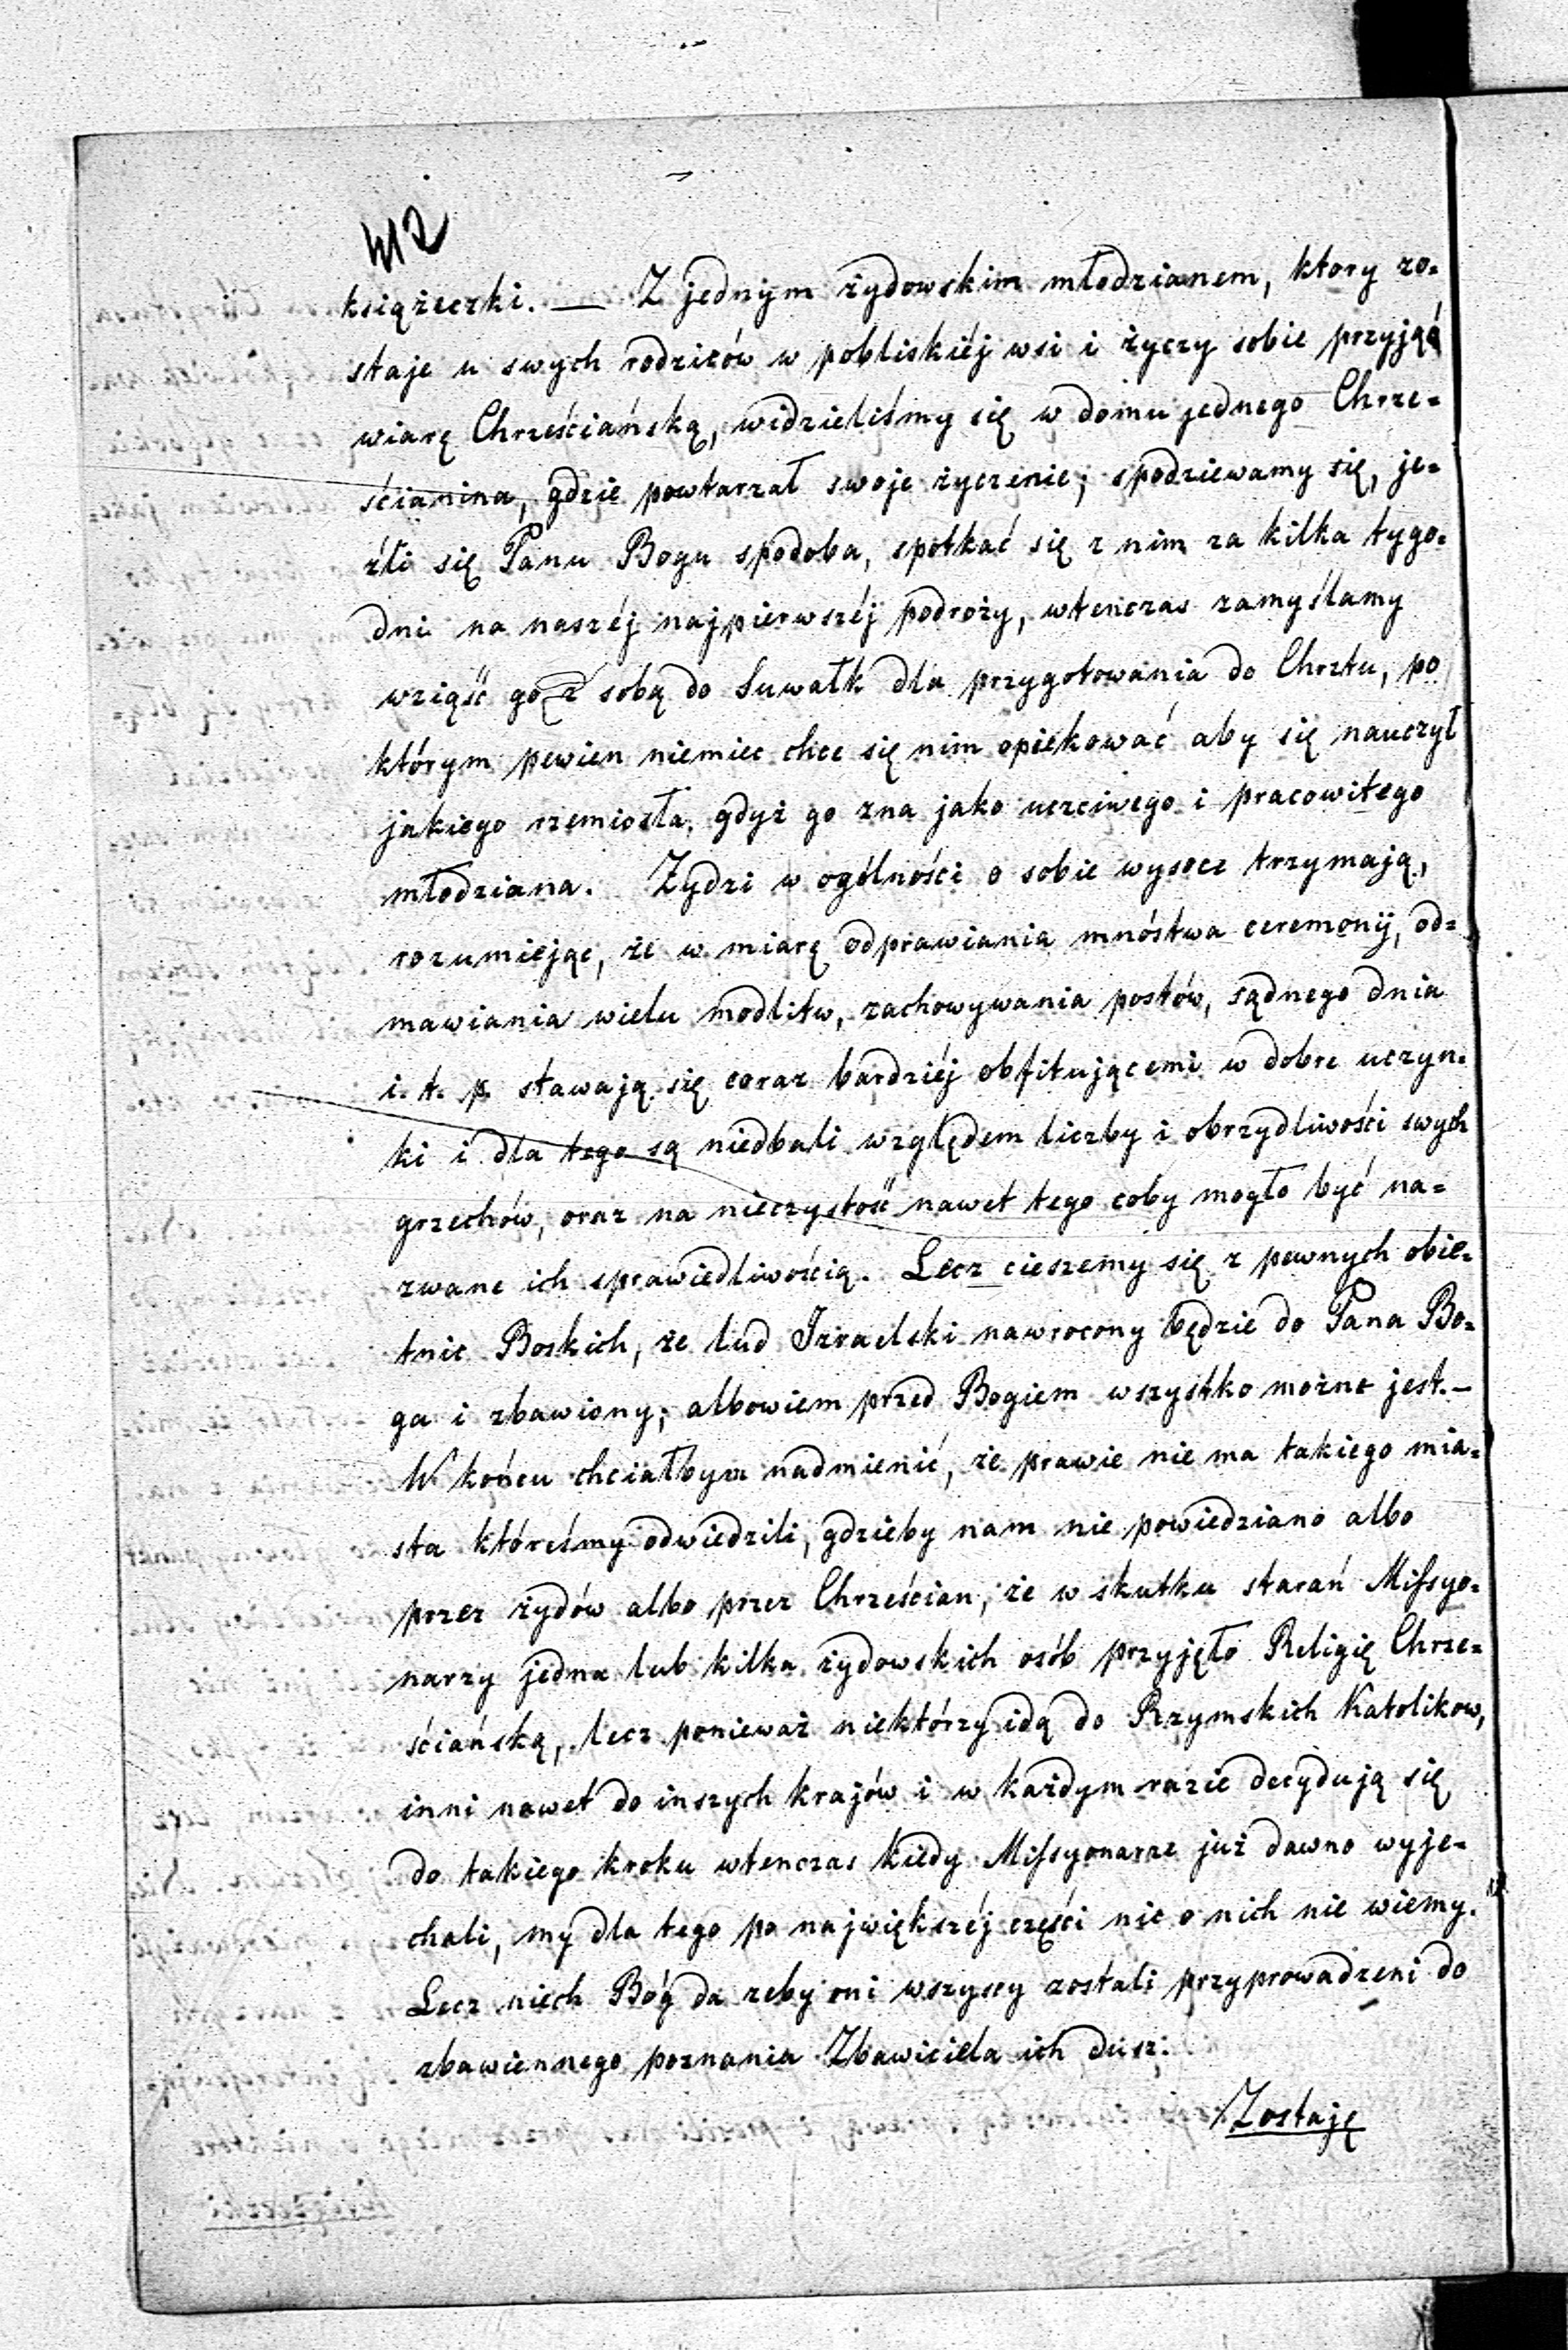 412
książeczki. — Z jednym żydowskim młodzianem, ktory zo-
staje u swych rodziców w pobliskiéj wsi i życzy sobie przyjąć
wiarę Chrześciańską, widzieliśmy się w domu jednego Chrze-
ścianina, gdzie powtarzał swoje życzenie; spodziewamy się, je-
źli się Panu Bogu spodoba, spotkać się z nim za kilka tygo-
dni na naszéj najpierwszéj podroży, wtenczas zamyślamy
wziąść go z sobą do Suwałk dla przygotowania do Chrztu, po
którym pewien niemiec chce się nim opiekować aby się nauczył
jakiego rzemiosła, gdyż go zna jako uczciwego i pracowitego
młodziana. Żydzi w ogólności o sobie wysoce trzymają,
rozumiejąc, że w miarę odprawiania mnóstwa ceremonij, od-
mawiania wielu modlitw, zachowywania postów, sądnego dnia
i. t. p. stawają się coraz bardziéj obfitującemi w dobre uczyn-
ki i dla tego są niedbali względem liczby i obrzydliwości swych
grzechów, oraz na nieczystość nawet tego coby mogło być na-
zwane ich sprawiedliwością. Lecz cieszemy się z pewnych obie-
tnic Boskich, że lud Izraelski nawrocony będzie do Pana Bo-
ga i zbawiony; albowiem przed Bogiem wszystko można jest. —
W końcu chciałbym nadmienić, że prawie nie ma takiego mia-
sta któreśmy odwiedzili, gdzieby nam nie powiedziano albo
przez żydów albo przez Chrześcian, że w skutku starań Missyo-
narzy jedna lub kilka żydowskich osób przyjęło Religię Chrze-
ściańską, lecz ponieważ niektórzy idą do Rzymskich Katolikow,
inni nawet do inszych krajów i w każdym razie decydują się
do takiego kroku wtenczas kiedy Missyonarze już dawno wyje-
chali, my dla tego po największéj części nic o nich nie wiemy.
Lecz niech Bóg da zeby oni wszyscy zostali przyprowadzeni do
zbawiennego poznania Zbawiciela ich dusz.
Zostaję